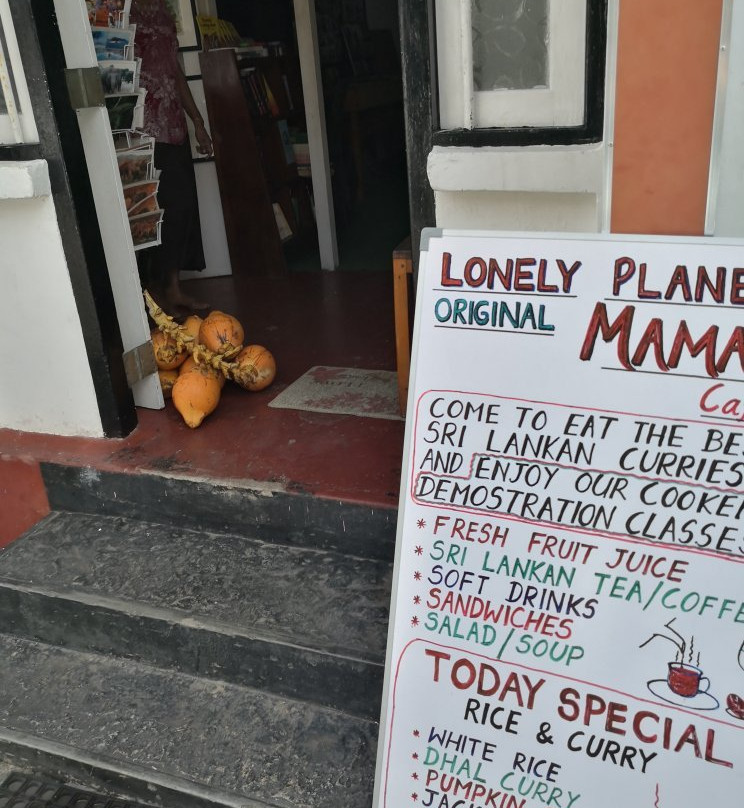 LONELY PLANE
ORIGINAL
MAMA
Ca
COME TO EAT THE BE
SRI LANKAN CURRIES
AND ENJOY OUR COOKE
DEMOSTRATION CLASSES
* FRESH FRUIT JUICE
* SRI LANKAN TEA/COFFE
* SOFT DRINKS
* SANDWICHES
* SALAD/SOUP
TODAY SPECIAL
RICE & CURRY
* WHITE RICE
* DHAL CURRY
* PUMPKIN